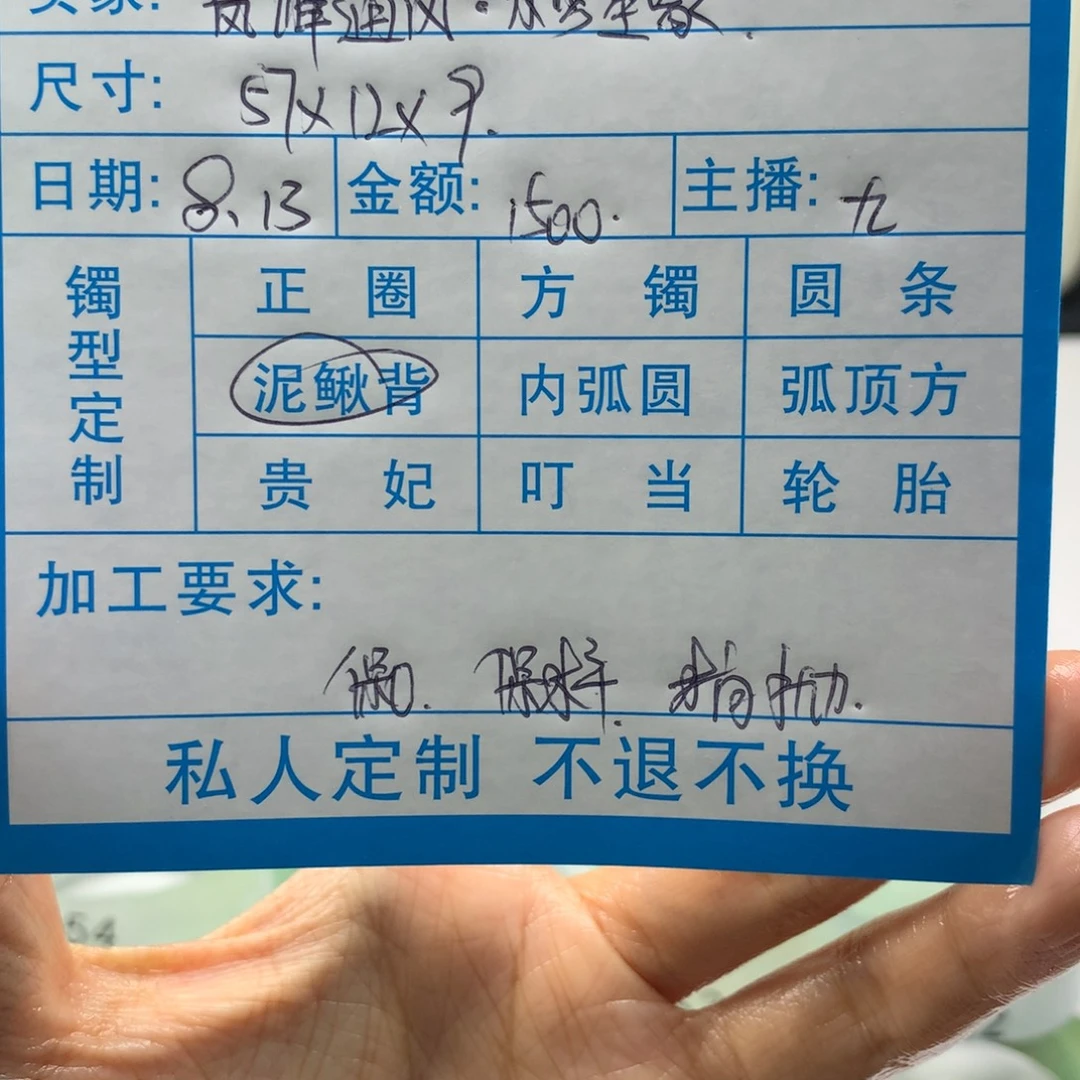 尺寸: 57×12×9.
日期: 8.13 金额: 1500. 主播: 九
镯型定制
正圈 方镯 圆条
泥鳅背 内弧圆 弧顶方
贵妃 叮当 轮胎
加工要求:
私人定制 不退不换
54